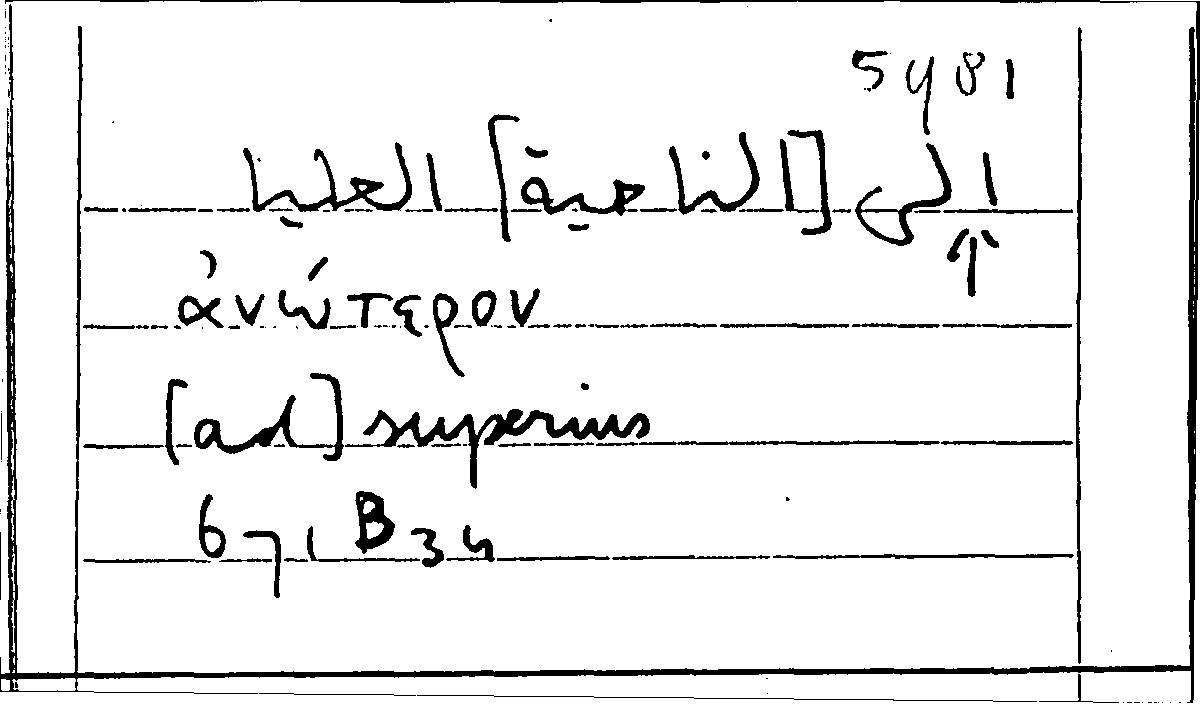 5481
الى [الناحية] العليا
↑
ἀνώτερον
[ad] superius
671 B 34